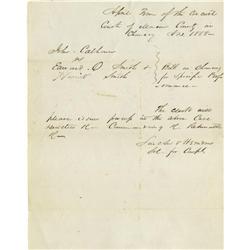 April Term of the Circuit
Court of Macon County in
Chancery A.D. 1858
John Calhoun
vs
Edward O Smith &
Smith
Bill in Chancery
for Specific Perf
ormance
The clerk will
please issue process in the above Case
Returnable
Lincoln & Herndon
Sol. for Compt